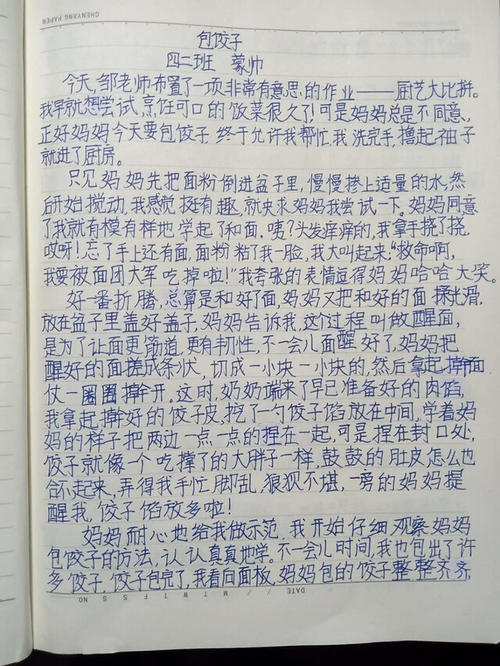 CHENYANG PAPER
包饺子
四二班 蒙帅
今天,邹老师布置了一项非常有意思的作业——厨艺大比拼。
我早就想尝试烹饪可口的饭菜很久了!可是妈妈总是不同意、
正好妈妈今天要包饺子,终于允许我帮忙,我洗完手,撸起袖子
就进了厨房。
只见妈妈先把面粉倒进盆子里,慢慢掺上适量的水,然
后开始搅动,我感觉挺有趣,就央求妈妈我尝试一下。妈妈同意
了我就有模有样地学起了和面.咦?头发痒痒的,我拿手挠了挠,
哎呀!忘了手上还有面,面粉粘了我一脸,我大叫起来:“救命啊,
我要被面团大军吃掉啦!”我夸张的表情逗得妈妈哈哈大笑。
好一番折腾,总算是和好了面,妈妈又把和好的面揉光滑,
放在盆子里盖好盖子,妈妈告诉我,这个过程叫做醒面,
是为了让面更筋道,更有韧性,不一会儿面醒好了,妈妈把
醒好的面搓成条状,切成一小块一小块的,然后拿起擀面
仗一圈圈擀开。这时,奶奶端来了早已准备好的肉馅,
我拿起擀好的饺子皮,挖了一勺饺子馅放在中间,学着妈
妈的样子把两边一点一点的捏在一起,可是捏在封口处,
饺子就像一个吃撑了的大胖子一样,鼓鼓的肚皮怎么也
合不起来,弄得我手忙脚乱,狼狈不堪,一旁的妈妈提
醒我,饺子馅放多啦!
妈妈耐心地给我做示范,我开始仔细观察妈妈
包饺子的方法,认认真真地学。不一会儿时间,我也包出了许
多饺子,饺子包完了,我看向面板,妈妈包的饺子整整齐齐,
DATE / / M T W T F S S NO